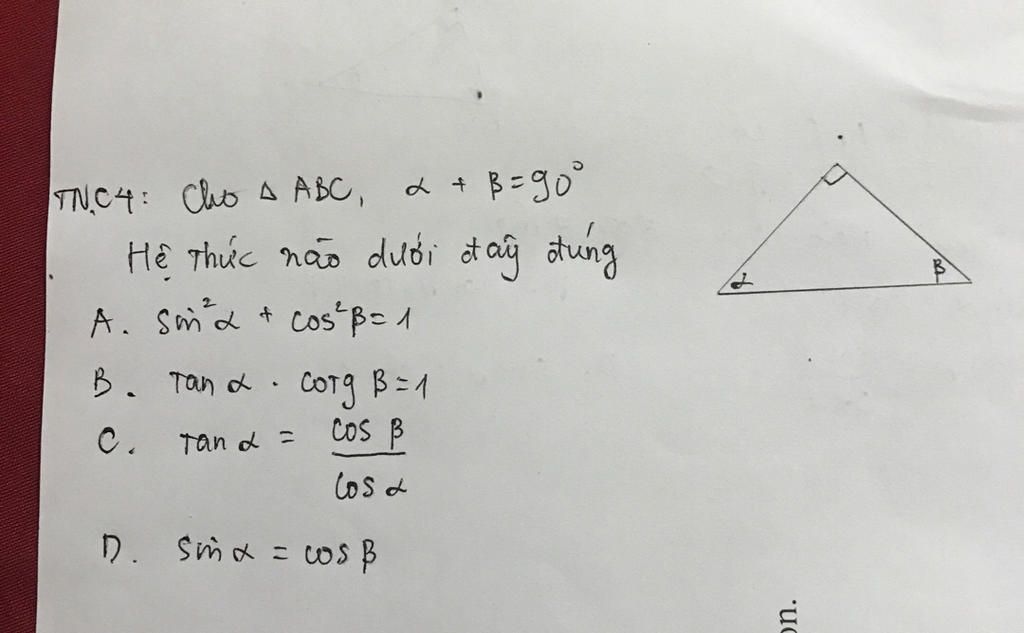 TN.C4: Cho Δ ABC, α + β = 90°
Hệ Thức nào dưới đây đúng
A. sin²α + cos²β = 1
B. Tan α . cotg β = 1
C. Tan α = cos β / cos α
D. sin α = cos β
α
β
on.